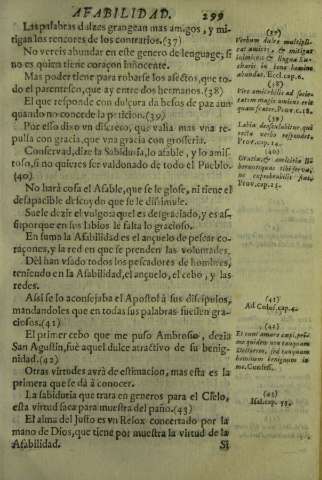 AFABILIDAD. 299
Las palabras dulzes grangean mas amigos, y mi-
tigan los rencores de los contrarios.(37)
No vereis abundar en este genero de lenguage, si
no es quien tiene coraçon innocente.
Mas poder tiene para robarse los afectos, que to-
do el parentesco, que ay entre dos hermanos.(38)
El que responde con dulçura da besos de paz aun
quando no concede la peticion.(39)
Por esso dixo vn discreto, que valia mas vna re-
pulsa con gracia, que vna gracia con grosseria.
Conservad, dize la Sabiduria, lo afable, y lo amis-
toso, si no quieres ser valdonado de todo el Pueblo.
(40)
No hará cosa el Afable, que se le glose, ni tiene el
desapacible descuydo que se le dissimule.
Suele dezir el vulgo: aquel es desgraciado, y es as-
si; porque en sus labios le falta lo gracioso.
En suma la Afabilidad es el ançuelo de pescar co-
raçones, y la red en que se prenden las voluntades.
Dèl han vsado todos los pescadores de hombres,
teniendo en la Afabilidad, el ançuelo, el cebo, y las
redes.
Assi se lo aconsejaba el Apostol à sus discipulos,
mandandoles que en todas sus palabras fuessen gra-
ciosos.(41)
El primer cebo que me puso Ambrosio, dezia
San Agustin, fuè aquel dulce atractivo de su benig-
nidad.(42)
Otras virtudes avrà de estimacion, mas esta es la
primera que se dà à conocer.
La sabiduria que trata en generos para el Cielo,
esta virtud saca para muestra del paño.(43)
El alma del Justo es vn Relox concertado por la
mano de Dios, que tiene por muestra la virtud de la
Afabilidad. Si
(37)
Verbum dulce multipli-
cat amicos, & mitigat
inimicos: & lingua Eu-
charis in bono homine
abundat. Eccl. cap. 6.
(38)
Vir amicabilis ad socie-
tatem magis amicus erit
quam frater. Prov. c. 18.
(39)
Labia deosculabitur, qui
recta verba respondet.
Prov. cap. 24.
(40)
Prov. cap. 25.
(41)
Ad Colos. cap. 4.
(42)
me. Confess.
(43)
Isai. cap.